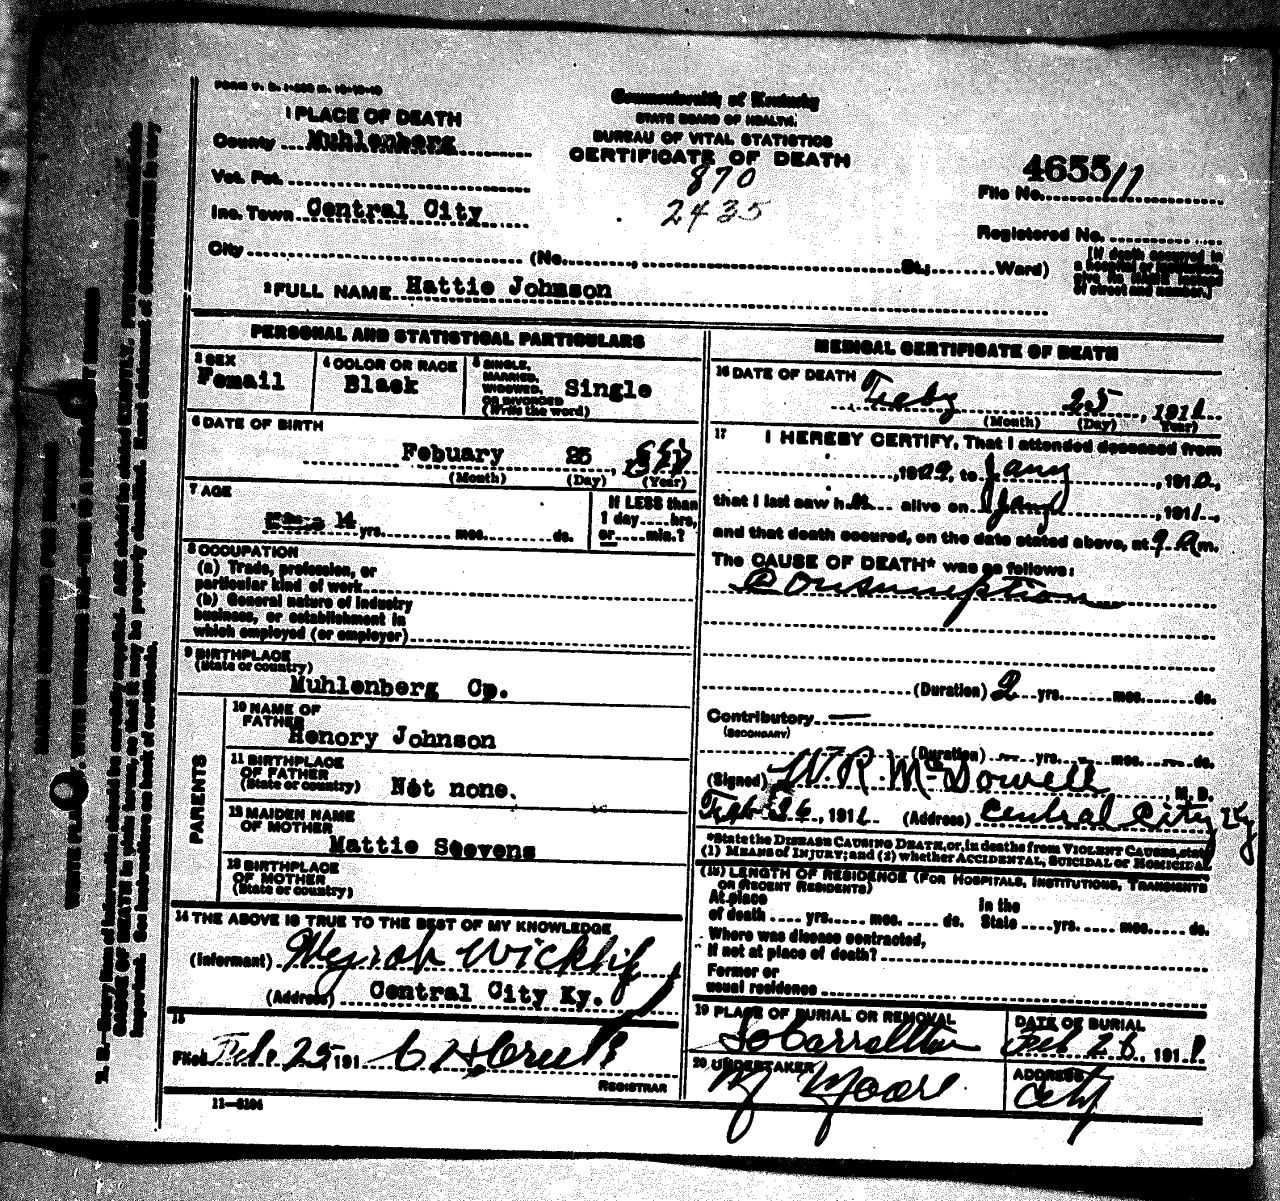 1 PLACE OF DEATH
County Muhlenberg
Vot. Pct.
Inc. Town Central City
City (No. , St.; Ward)
Commonwealth of Kentucky
STATE BOARD OF HEALTH.
BUREAU OF VITAL STATISTICS
CERTIFICATE OF DEATH
870
2435
4655 11
File No.
Registered No.
[If death occurred in
a hospital or institution,
give its NAME instead
of street and number.]
2 FULL NAME Hattie Johnson
PERSONAL AND STATISTICAL PARTICULARS
3 SEX
Femail
4 COLOR OR RACE
Black
5 SINGLE,
MARRIED,
WIDOWED,
OR DIVORCED
(Write the word)
Single
6 DATE OF BIRTH
Febuary 25,
(Month) (Day) (Year)
7 AGE
14 yrs. mos. ds.
If LESS than
1 day hrs,
or min.?
8 OCCUPATION
(a) Trade, profession, or
particular kind of work
(b) General nature of industry
business, or establishment in
which employed (or employer)
9 BIRTHPLACE
(State or country)
Muhlenberg Cp.
PARENTS
10 NAME OF
FATHER
Henory Johnson
11 BIRTHPLACE
OF FATHER
(State or country)
Not none.
12 MAIDEN NAME
OF MOTHER
Mattie Steevens
13 BIRTHPLACE
OF MOTHER
(State or country)
14 THE ABOVE IS TRUE TO THE BEST OF MY KNOWLEDGE
(Informant) Wickliff
(Address) Central City Ky.
15
Filed Feb. 25, 191
REGISTRAR
11—3184
MEDICAL CERTIFICATE OF DEATH
16 DATE OF DEATH
Feby 25, 1911
(Month) (Day) Year)
17 I HEREBY CERTIFY, That I attended deceased from
, 1909, to Jany , 191 ,
that I last saw h alive on Jany , 1911,
and that death occured, on the date stated above, at 9 a m.
The CAUSE OF DEATH* was as follows:
Consumption
(Duration) 2 yrs. mos. ds.
Contributory —
(SECONDARY)
(Duration) — yrs. - mos. — ds.
(Signed) W R McDowell, M. D.
Feb 26, 1911 (Address) Central City Ky
*State the DISEASE CAUSING DEATH, or, in deaths from VIOLENT CAUSES, state
(1) MEANS of INJURY; and (2) whether ACCIDENTAL, SUICIDAL or HOMICIDAL
(18) LENGTH OF RESIDENCE (FOR HOSPITALS, INSTITUTIONS, TRANSIENTS
OR RECENT RESIDENTS)
At place
of death yrs. mos. ds.
In the
State yrs. mos. ds.
Where was disease contracted,
if not at place of death?
Former or
usual residence
19 PLACE OF BURIAL OR REMOVAL
So Carrollton
DATE OF BURIAL
Feb 26, 1911
20 UNDERTAKER
M Moore
ADDRESS
City
MARGIN RESERVED FOR BINDING
WRITE PLAINLY, WITH UNFADING INK—THIS IS A PERMANENT RECORD
N. B.—Every item of information should be carefully supplied. AGE should be stated EXACTLY. PHYSICIANS should state
CAUSE OF DEATH in plain terms, so that it may be properly classified. Exact statement of OCCUPATION is very
important. See instructions on back of certificate.